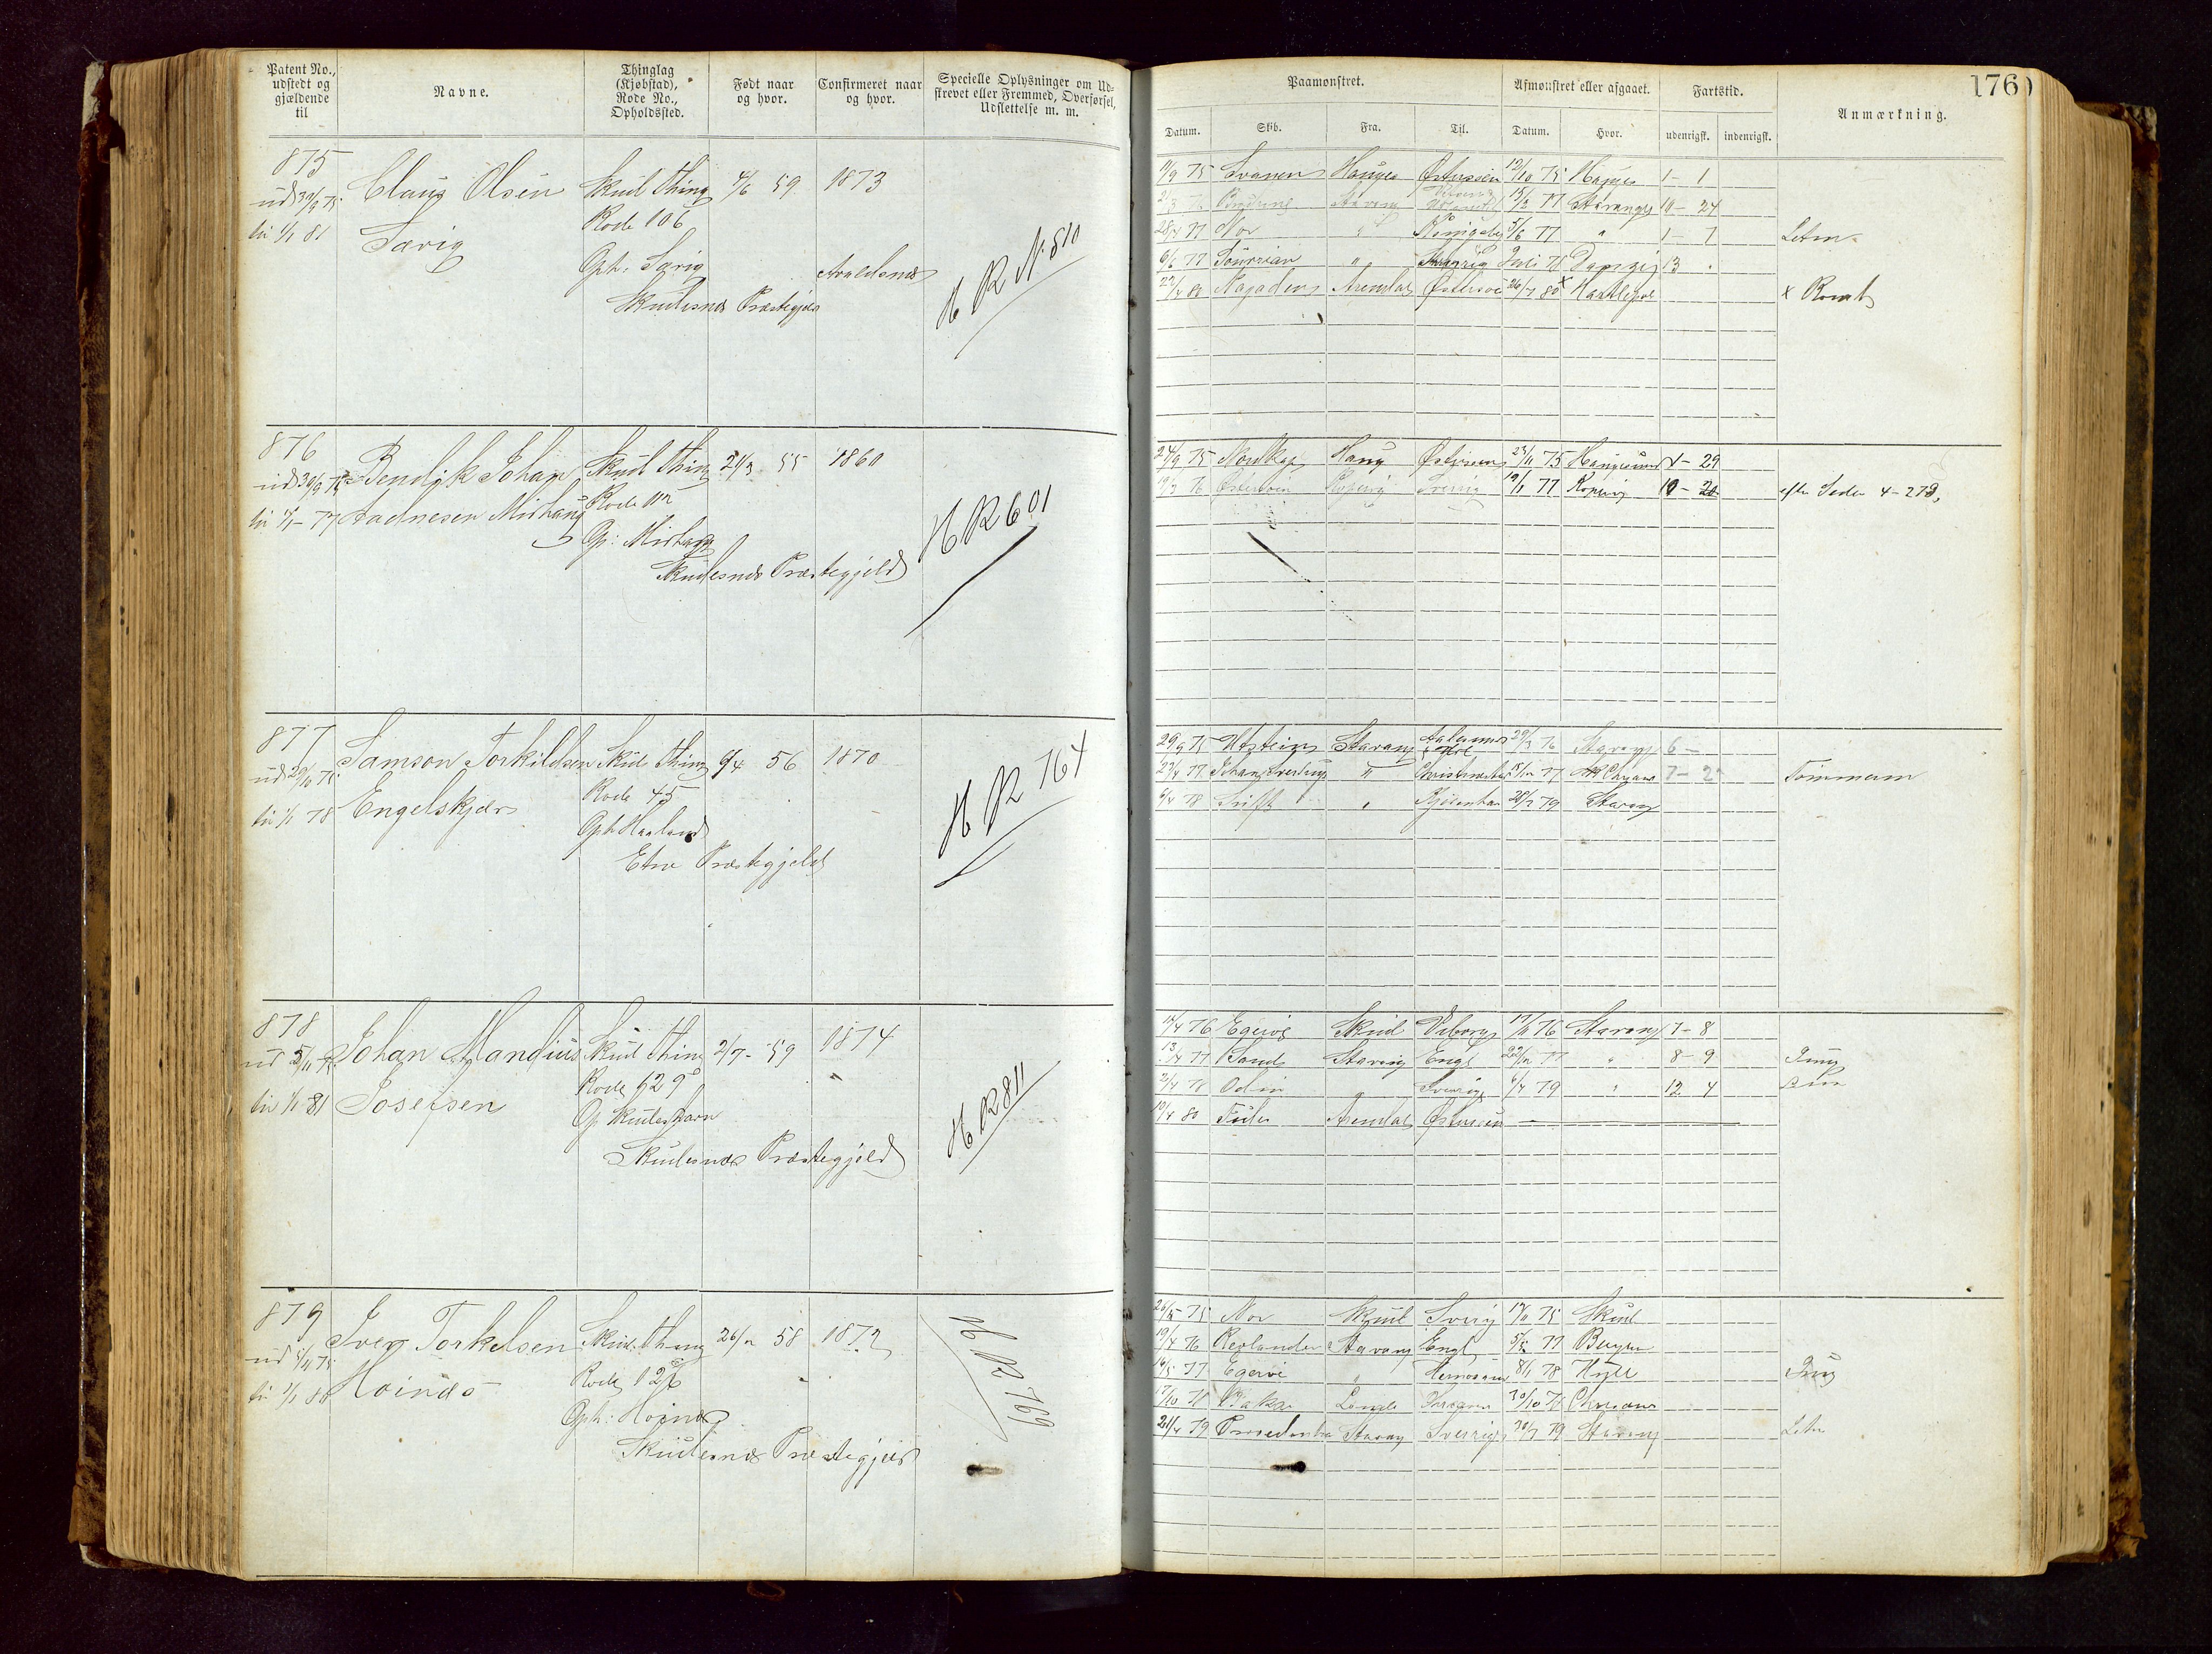 Patent No., udstedt og gjældende til
Navne.
Thinglag (Kjøbstad), Rode No., Opholdssted.
Født naar og hvor.
Confirmeret naar og hvor.
Specielle Oplysninger om Udskrevet eller Fremmed, Overførsel, Udslettelse m. m.
875
ud 30/9 75
til 1/1 81
Claus Olsen
Sævig
Skud Thing
Rode 106
Oph: Sævig
Skudesnæs Præstegjeld
4/6 59
1873
Avaldsnæs
H R N. 810
876
ud 30/9 75
til 1/1 - 77
Bendik Johan
Aadnesen Mirhaug
Skud Thing
Rode
Op: Mirhaug
Skudesnæs Præstegjeld
55
1860
H R 601
877
til 1/1 78
Samson Torkildsen
Engelskjær
Skud Thing
Rode 45
Oph Haaland
Etne Præstegjeld
6/4 56
1870
H R 164
878
ud 5/11 75
til 1/1 81
Johan Mandius
Josefsen
Skud Thing
Rode 129
Op Skudeshavn
Skudesnæs Præstegjeld
2/7 - 59
1874
H R 811
879
ud 5/11 75
til 1/1 80
Iver Torkelsen
Høinæs
Skud. Thing
Rode 126
Oph: Høinæs
Skudesnæs Præstegjeld
26/12 58
1872
H R 769
176
Paamønstret.
Afmønstret eller afgaaet.
Fartstid.
Anmærkning.
Datum. Skib. Fra. Til. Datum. Hvor. udenrigsk. indenrigsk.
11/9 75 Svanen Hauges Østersøen 12/10 75 Hauges 1 - 1
Stavang 15/2 77 Stavanger 10 - 24
28/4 77 Nor " Kønigsberg 5/6 77 " 1 - 7 Letm.
6/6 77 " Danzig 13
22/4 80 Najaden Arendal Østersøen 26/7 80 x Hartlepol x Rømt
24/9 75 Nordkap Haug Østersøen 23/11 75 Haugesund 1 - 29
19/3 76 Kopervig Sverrig 19/1 77 Kopervig 10 - 20 efter Seden 4 - 27
29/9 75 Utstein Stavang 29/3 76 Stavang 6 -
27/4 77 Johan Sverdrup " 77 Chrsans 7 - 2 Tømmerm
5/4 78 Svift " Kjøbenhav 28/2 79 Stavang
14/4 76 Egerøe Skud Viborg 17/11 76 Stavang 7 - 8
13/4 77 Sand Stavang Engl 22/12 77 " 8 - 9 Jung
2/4 78 Odin " Sverrig 6/4 79 " 12. 4
10/4 80 Arendal Østersøen
26/5 75 Nor Skud Sverig 17/11 75 Skud
19/4 76 Røylander Stavang Engl 5/5 77 Bergen
16/5 77 Egerøe " Hernøsand 8/1 78 Hull Jung
17/10 78 30/10 78 Chrsans
21/4 79 Providentia Stavang Sverrig 30/7 79 Stavang Letm